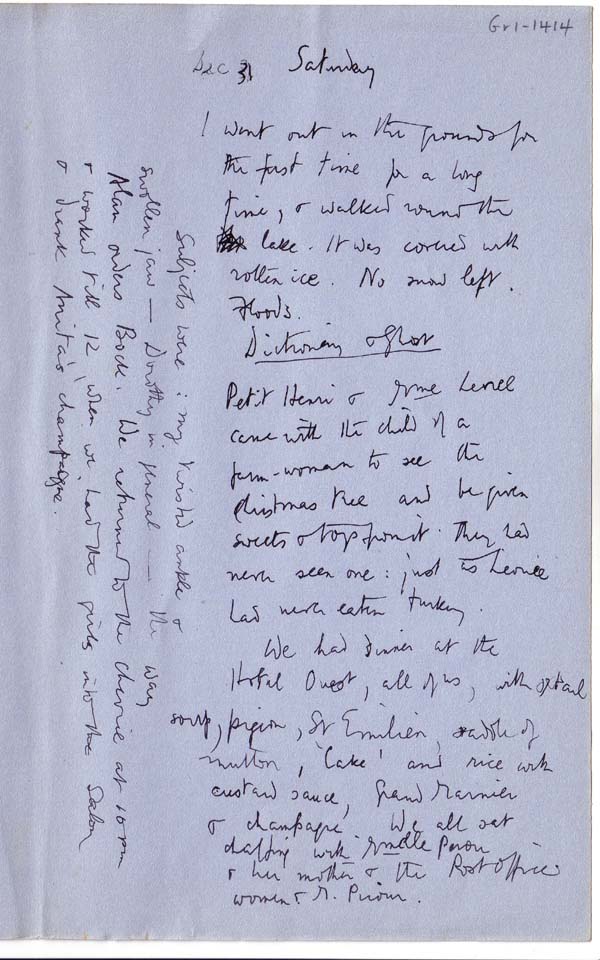 Gr1-1414
Dec 31 Saturday
I went out in the grounds for
the first time for a long
time, & walked round the
lake. It was covered with
rotten ice. No snow left.
Floods.
Dictionary
Petit Henri & Mme
came with the child of a
farm-woman to see the
Christmas tree and be given
sweets & toys & fruit. They had
never seen one: just as Leonie
had never eaten turkey.
We had dinner at the
Hotel Ouest, all of us, with oxtail
soup, pigeon, St Emilien, saddle of
mutton, 'Cake' and rice with
custard sauce, Grand Marnier
& champagne. We all sat
chaffing with Mdlle
& her mother & the Post Office
women & M.
Subjects were: my twisted ankle &
swollen jaw — Dorothy in general — the way
Alan orders Bock. We returned to the at 10 pm
& worked till 12, when we had the girls into the Salon
& drank Anita's champagne.